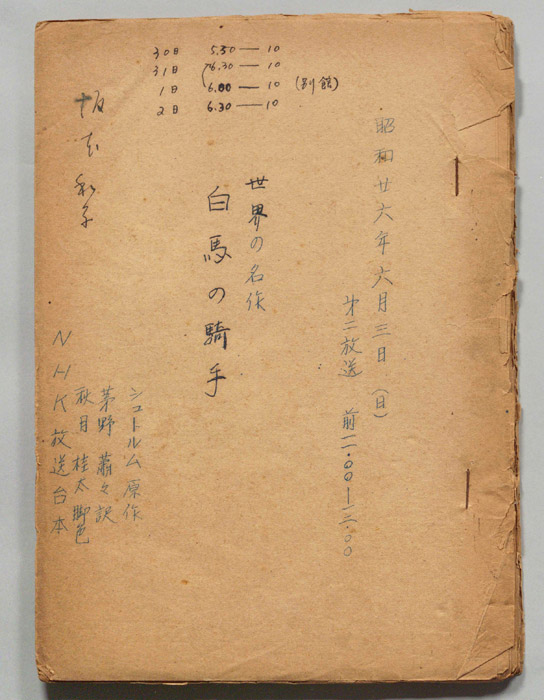 30日 5.50—10
31日 6.30—10
1日 6.00—10 (別館)
2日 6.30—10
昭和廿六年六月三日(日)
第二放送 前一一.〇〇—一二.〇〇
世界の名作
白馬の騎手
シュトルム原作
茅野蕭々訳
秋月桂太脚色
NHK放送台本
坂本和子